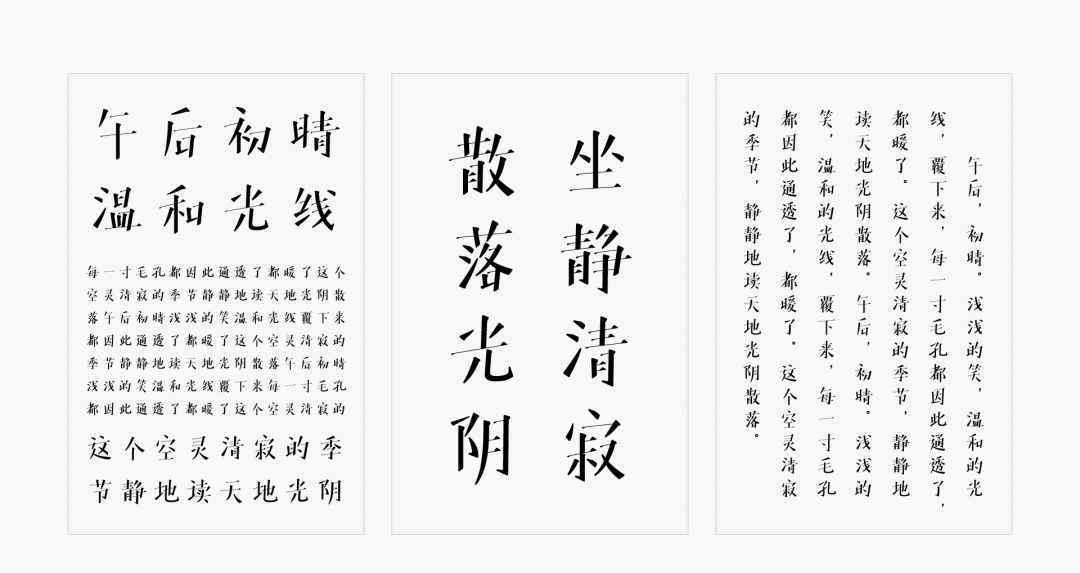 午后初晴
温和光线
每一寸毛孔都因此通透了都暖了这个
空灵清寂的季节静静地读天地光阴散
落午后初晴浅浅的笑温和光线覆下来
都因此通透了都暖了这个空灵清寂的
季节静静地读天地光阴散落午后初晴
浅浅的笑温和光线覆下来每一寸毛孔
都因此通透了都暖了这个空灵清寂的
这个空灵清寂的季
节静地读天地光阴
坐静清寂
散落光阴
午后，初晴。浅浅的笑，温和的光
线，覆下来，每一寸毛孔都因此通透了，
都暖了。这个空灵清寂的季节，静静地
读天地光阴散落。午后，初晴。浅浅的
笑，温和的光线，覆下来，每一寸毛孔
都因此通透了，都暖了。这个空灵清寂
的季节，静静地读天地光阴散落。